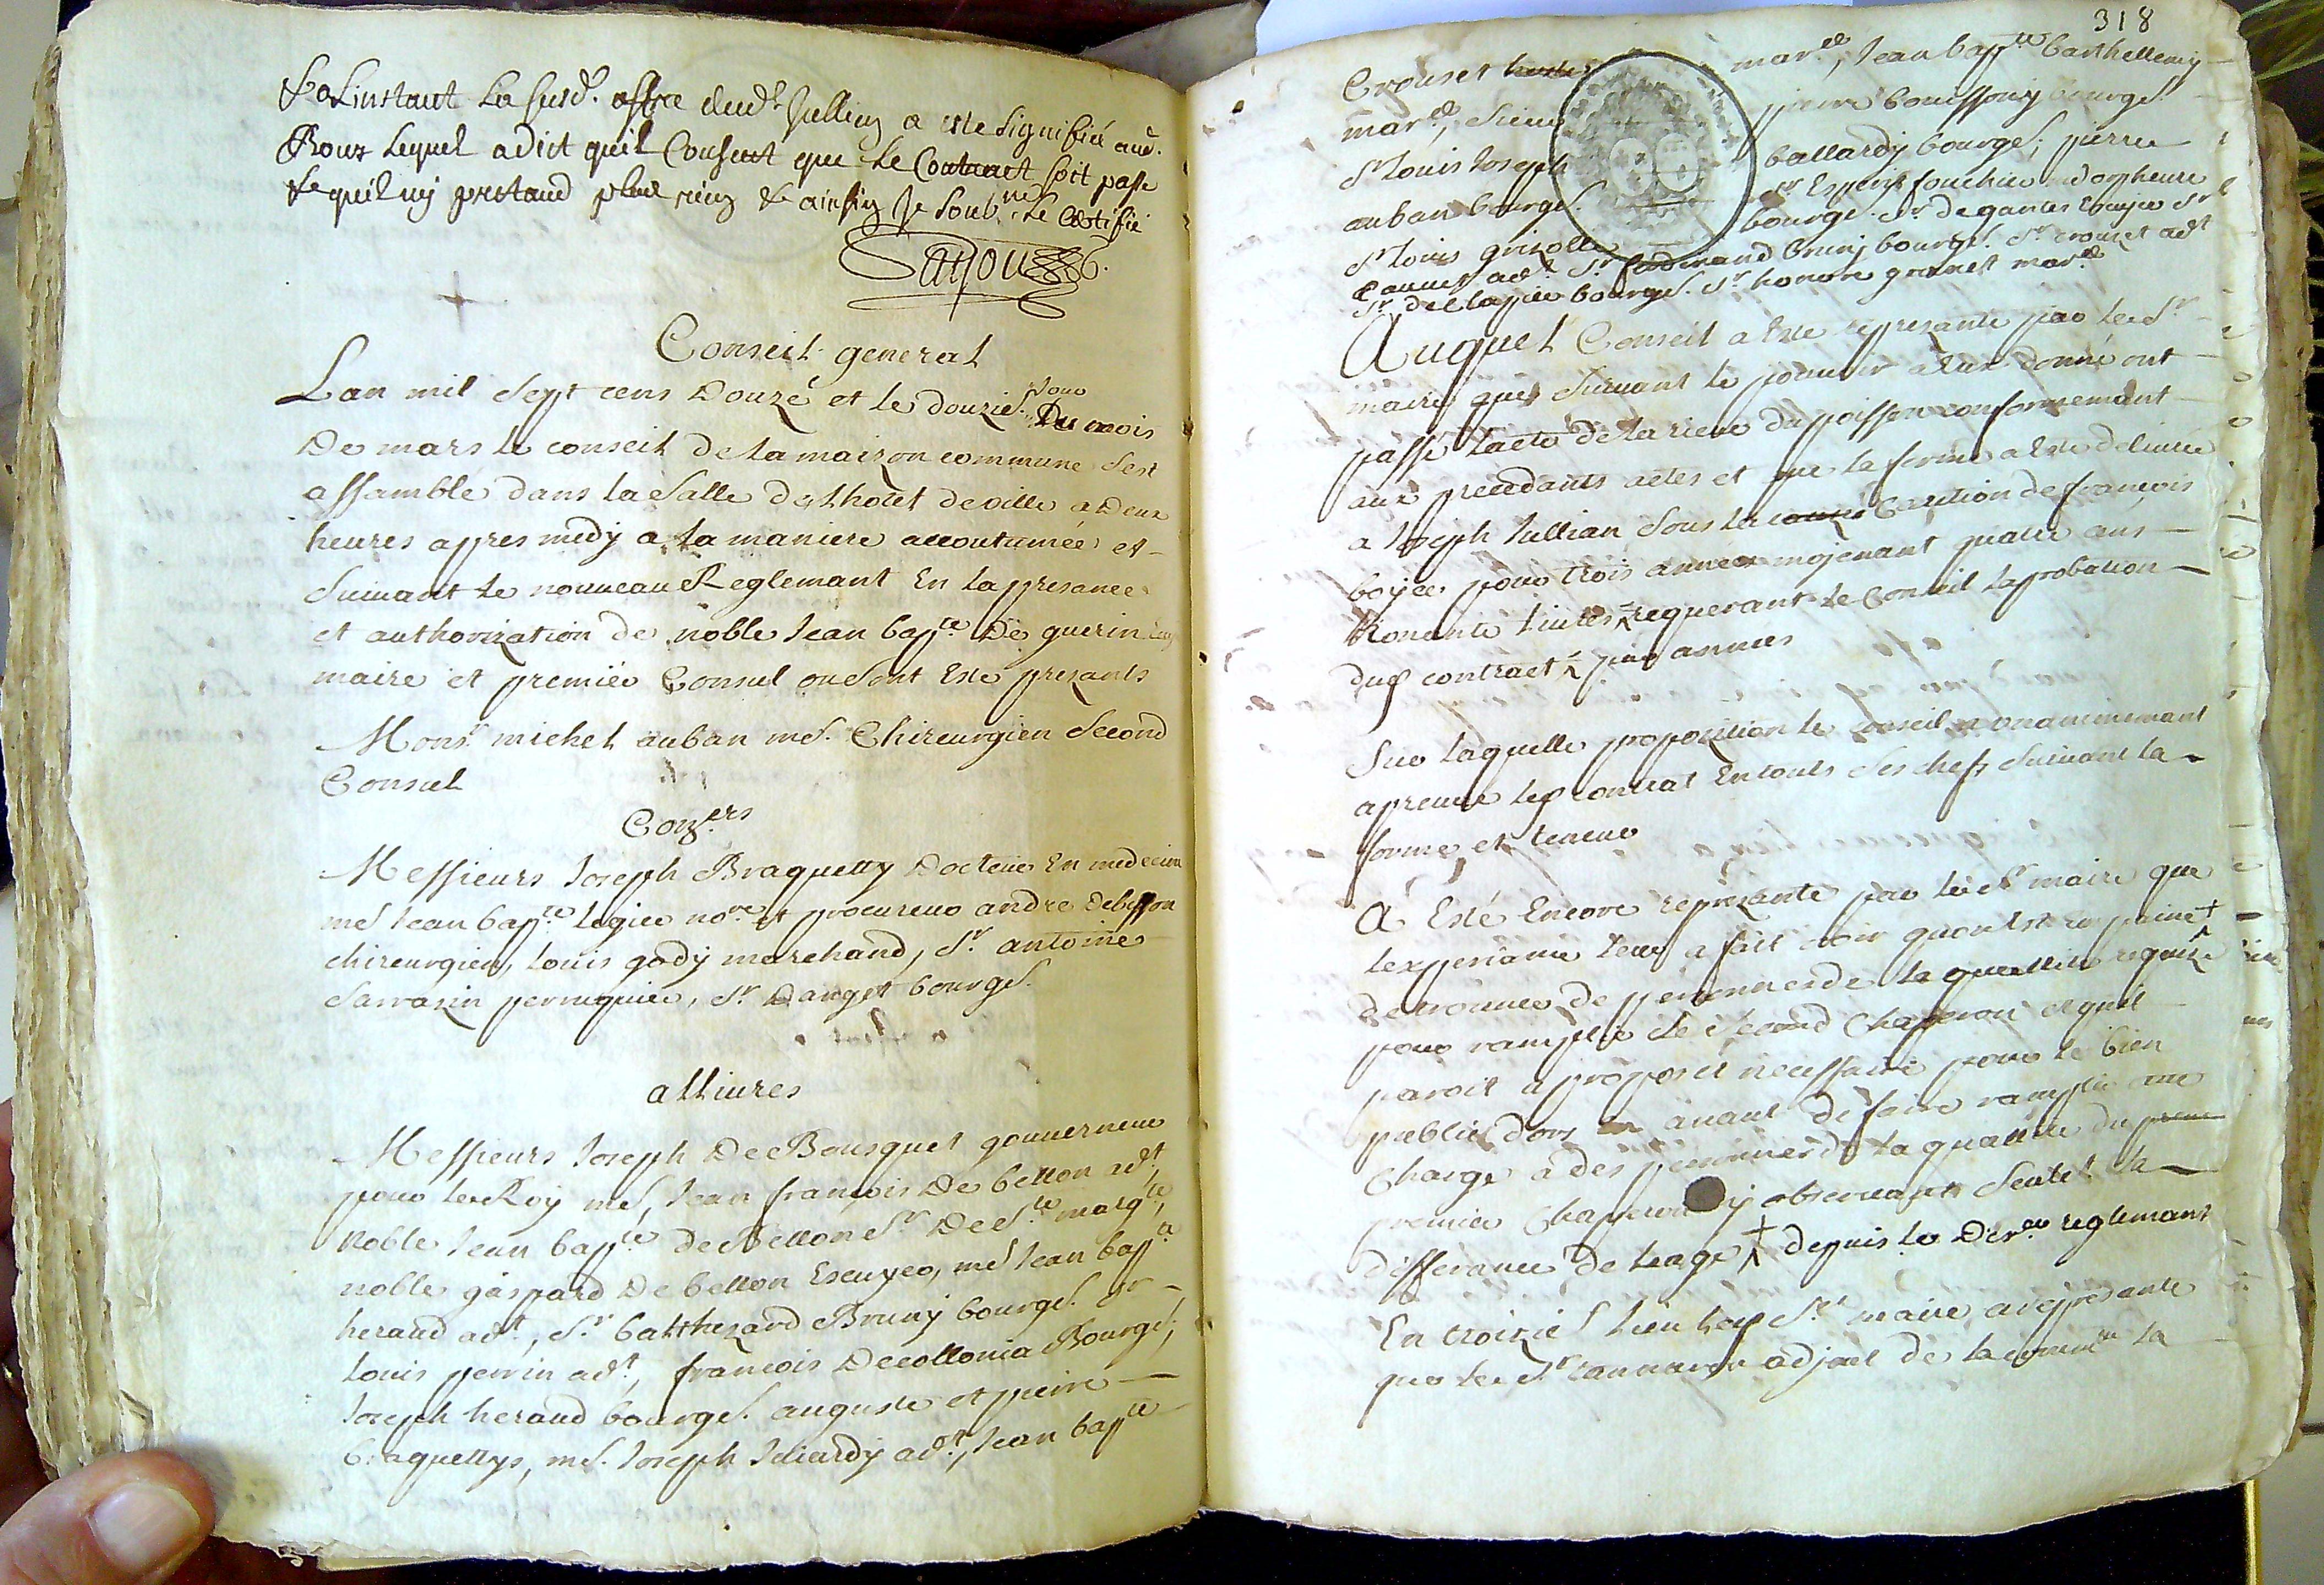 & a Linstant La susd. offre dud. Jullien a este signifiée aud.
Roux Lequel a dict quil Consent que Le Contract soit passé
& quil ny prettand plus rien & ainsin Je soubné. Le Certifié
Conseil general
Lan mil sept cens Douze et le douzie. Jour Du mois
De mars le conseil de la maison commune sest
assamblé dans la salle de lhotel de ville a Deux
heures appres midy a la maniere accoutumée et
suivant le nouveau Reglemant En la presance
et authorization de noble Jean bapte. De guerin
maire et premier Consul ou sont Esté presants
Monsr. michel auban me. Chireurgien Second
Consul
Coners
Messieurs Joseph Braquetty Docteur En medecin
me Jean bapte. Logier nore. et procureur andre Debesson
chireurgien, Louis gody marchand, Sr. antoine
Sarrazin perruquier, Sr. Danget bourgs.
allivres
Messieurs Joseph De Bousquet gouverneur
pour le Roy me, Jean françois De bellon adt,
Noble Jean bapte. de Bellon Sr De Ste. margte.,
noble gaspard De bellon Escuyer, me Jean bapte
heraud adt, Sr. balthezard Bruny bourgs. Sr
Louis perrin adt, francois Decollonia Bourgs.,
Joseph heraud bourgs. auguste et pierre
braquettys, me. Joseph Jeliardy adt, Jean bapte
318
Crouset mard., Jean bapte barthellemy
mard., Sieur pierre bouissony bourgs.
Sr Louis Joseph ballardy bourgs., pierre
auban bourgs. Sr Esperit fouchier
Sr Louis grizolle bourgs. Sr de gantes Sr
adt. Sr ferdinand Bruny bourgs. Sr crouset adt
Sr. bourgs. Sr honore granet mard.
Auquel Conseil a Esté represanté par le Sr
maire que suivant le pouvoir a Eux donné ont
passé lacte de la rieve du poisson conformemant
aux precedants actes et que la ferme a Esté delivrée
a Joseph Jullian sous la caution de francois
boyer pour trois années mojenant quatre ans
Nonante livres requerant le Conseil laprobation
dud contract par années
Sur laquelle proposition le conseil a unanimemant
apreuvé led contrat En touts ses chefs suivant la
forme et teneur
A Esté Encore represanté par led Sr maire que
lexperiance leur a fait voir quon Est en paine
de trouver de personnes de la quallité requize
pour ramplir le second Chapperon et quil
paroit a propos et necessaire pour le bien
public dors En avant de faire ramplir une
Charge a des personnes de la quallité du
premier Chapperon y observant seulet. la
differance de leage depuis le Dernr. reglemant
En troizie. lieu led Sr. maire a represanté
que le Sr adjoal de la commté. la